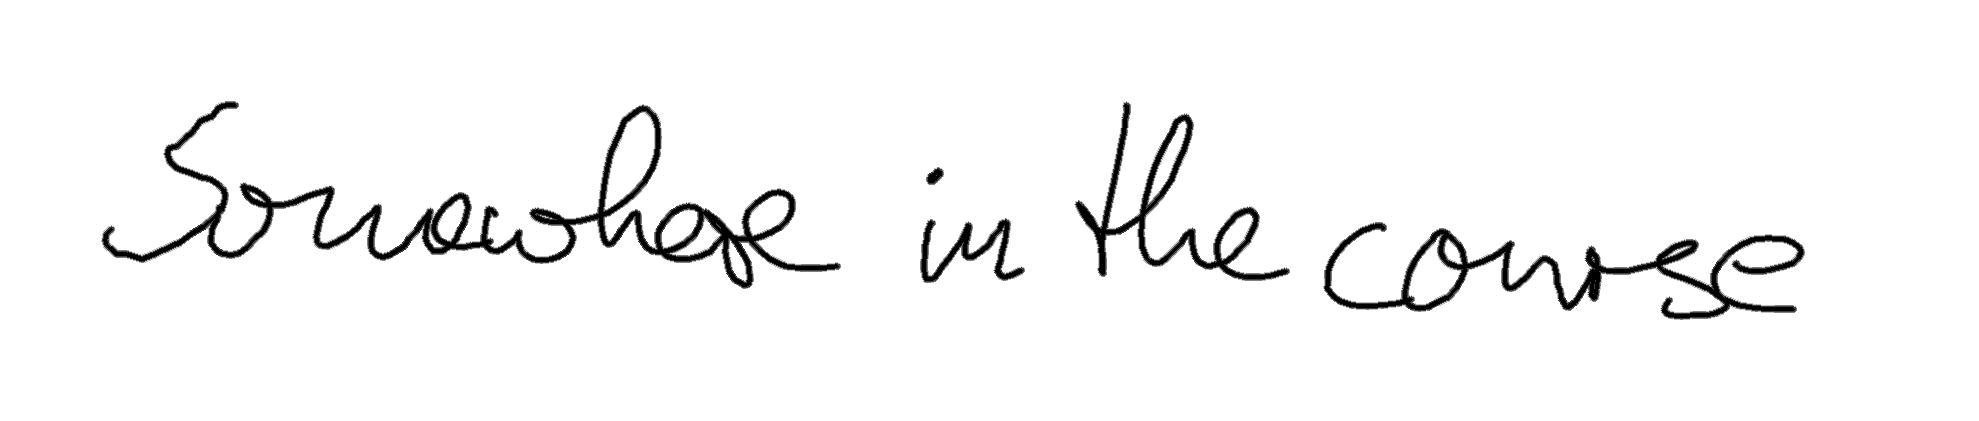 Somewhere in the course